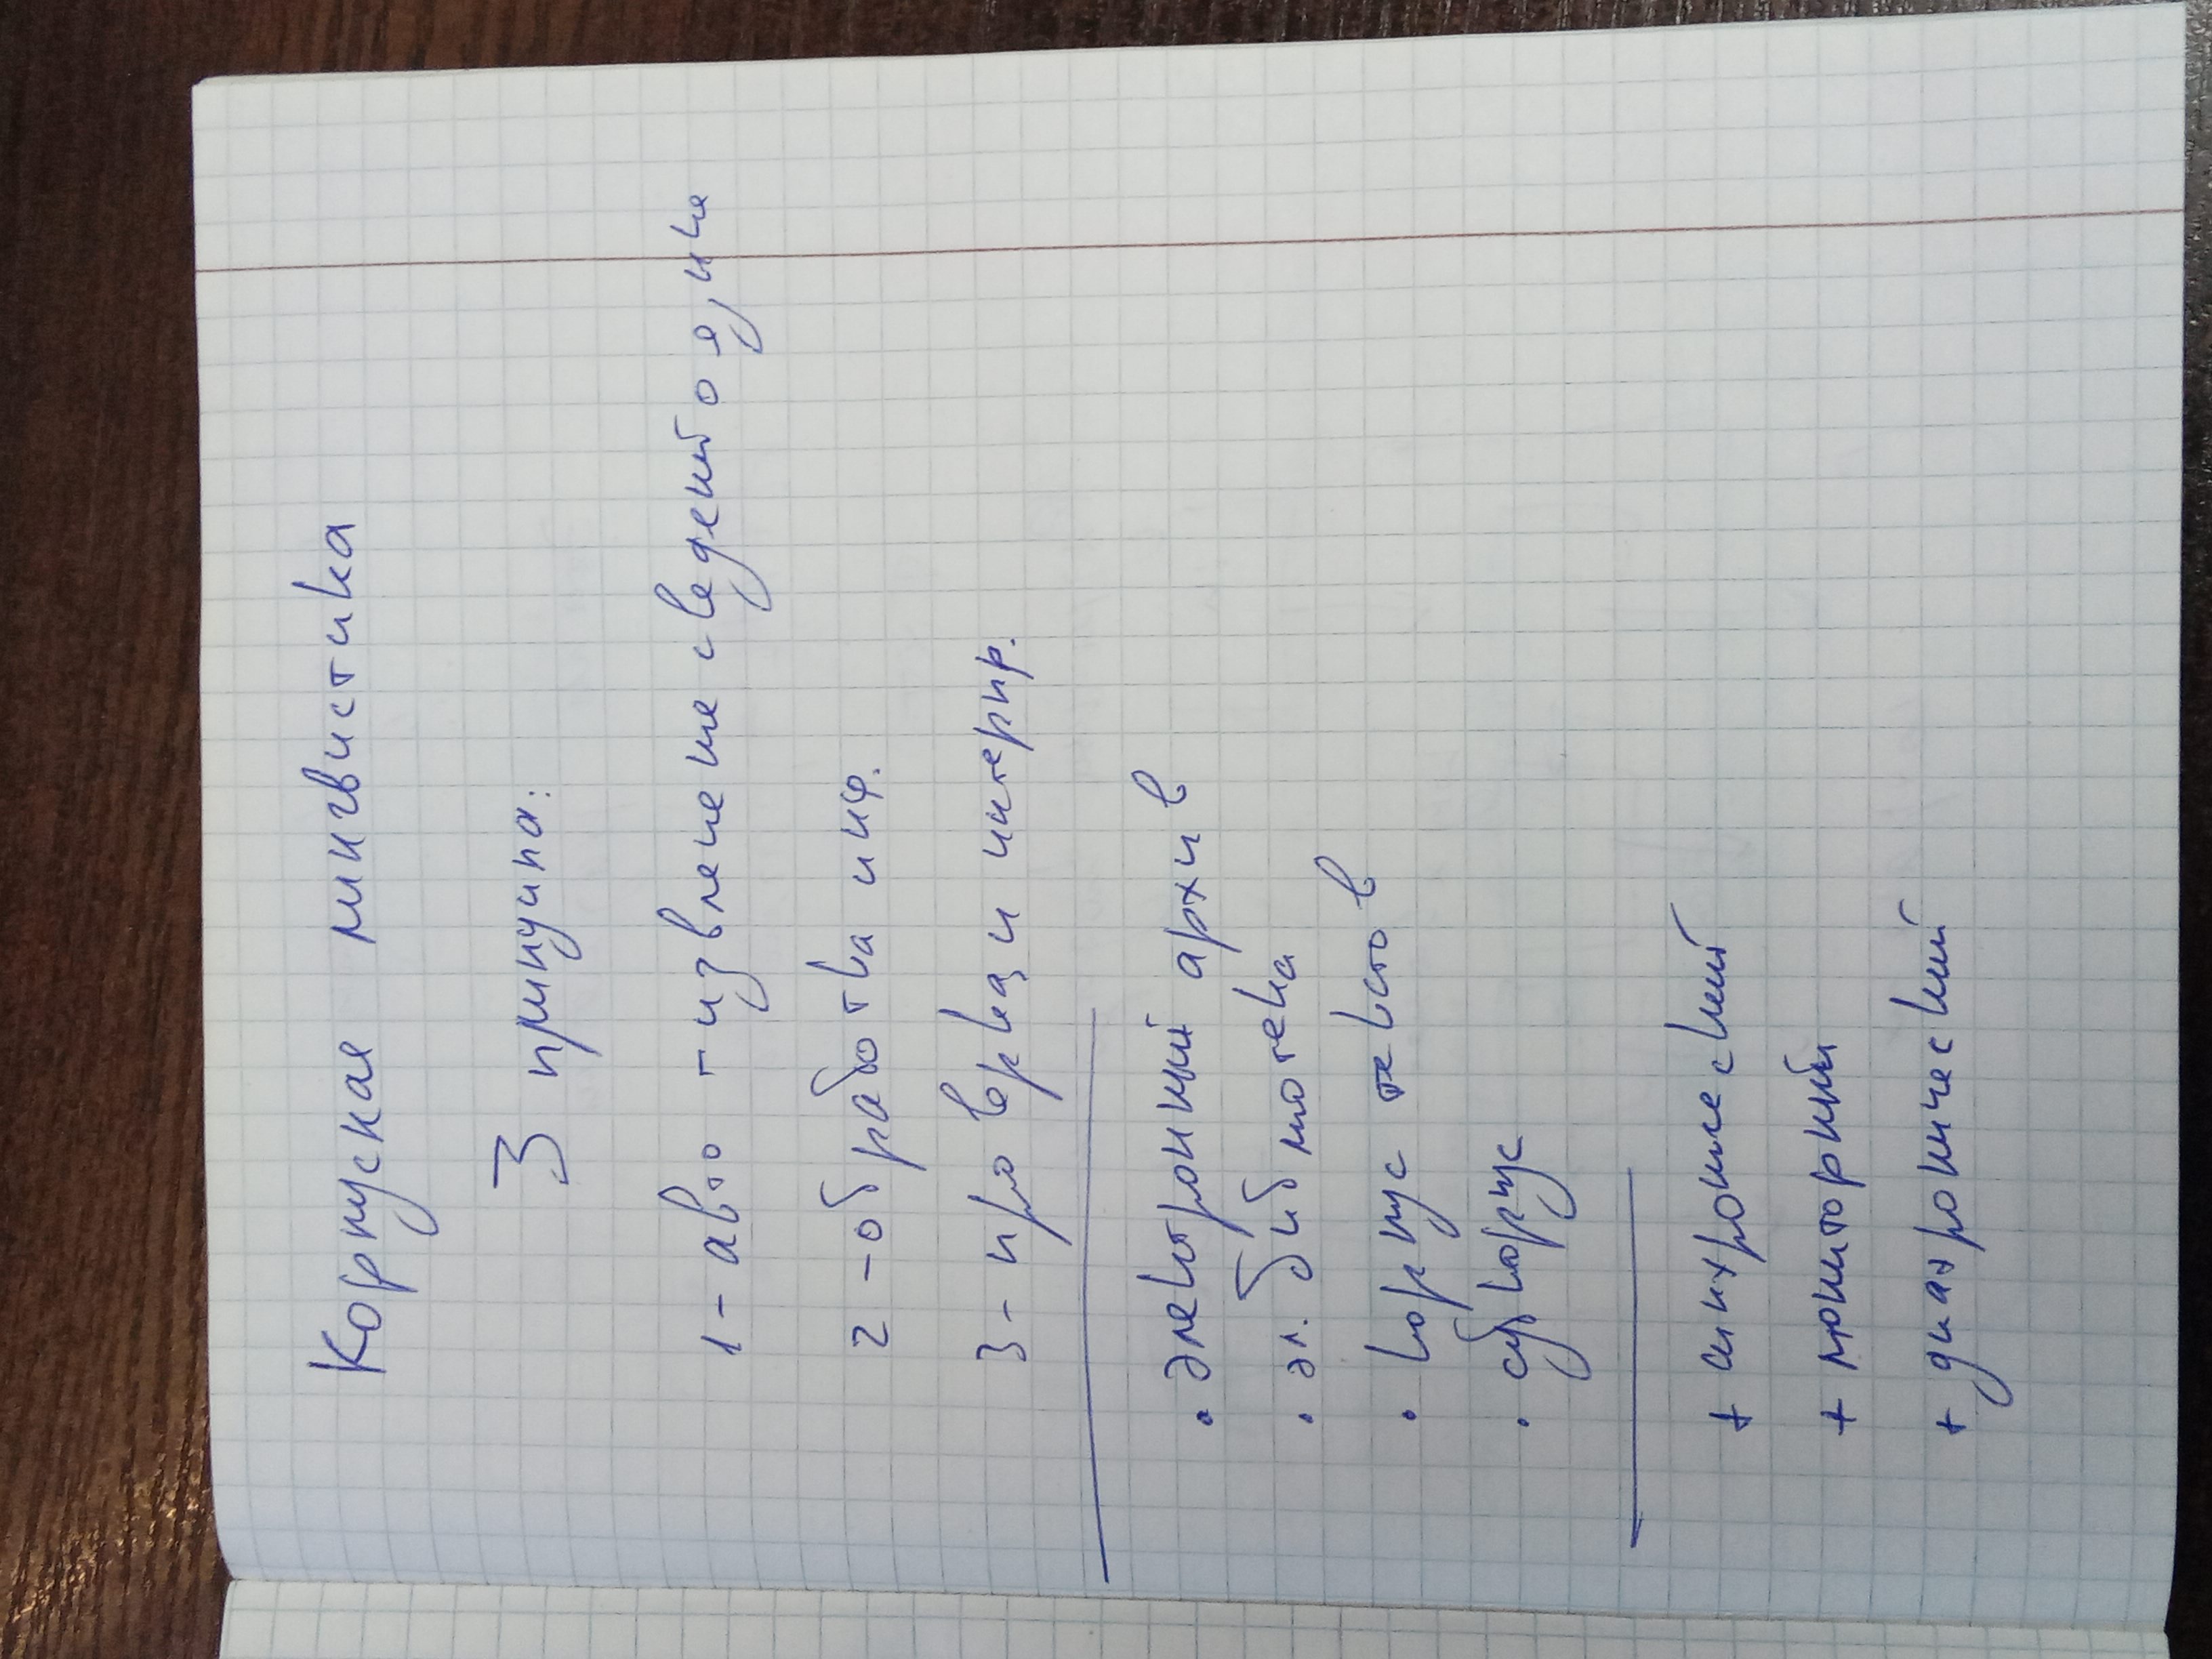 Корпусная лингвистика
3 принципа:
1 - авто - извлечение сведений о языке
2 - обработка инф.
3 - проврка, и интерпр.
• электронный архив
• эл. библиотека
• корпус текстов
• субкорпус
+ синхронический
+ мониторный
+ диахронический